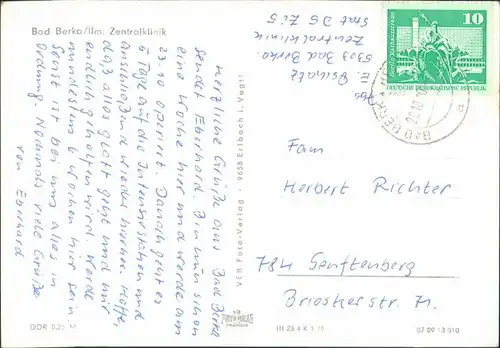 Bad Berka/Ilm. Zentralklinik
Herzliche Grüße aus Bad Berka
sendet Eberhard. Bin nun schon
eine Woche hier und werde am
23.10 operiert. Danach geht es
6 Tage auf die Intensivstation und
anschließend wieder hierher. Hoffe,
daß alles glatt geht und mir
endlich geholfen wird. Werde
mindestens 6 Wochen hier sein.
Sonst ist bei uns alles in
Ordnung. Nochmals viele Grüße
von Eberhard
DDR 0,25 M
VEB Foto-Verlag · 9658 Erlbach i. Vogtl.
III 23 4 K 1/75
07 09 13 010
Abs.
E.
5303 Bad Berka
Zentralklinik
Stat D5 Zi 5
10
DEUTSCHE DEMOKRATISCHE REPUBLIK
BAD BERKA
Fam
Herbert Richter
784 Senftenberg
Brieskerstr. 71